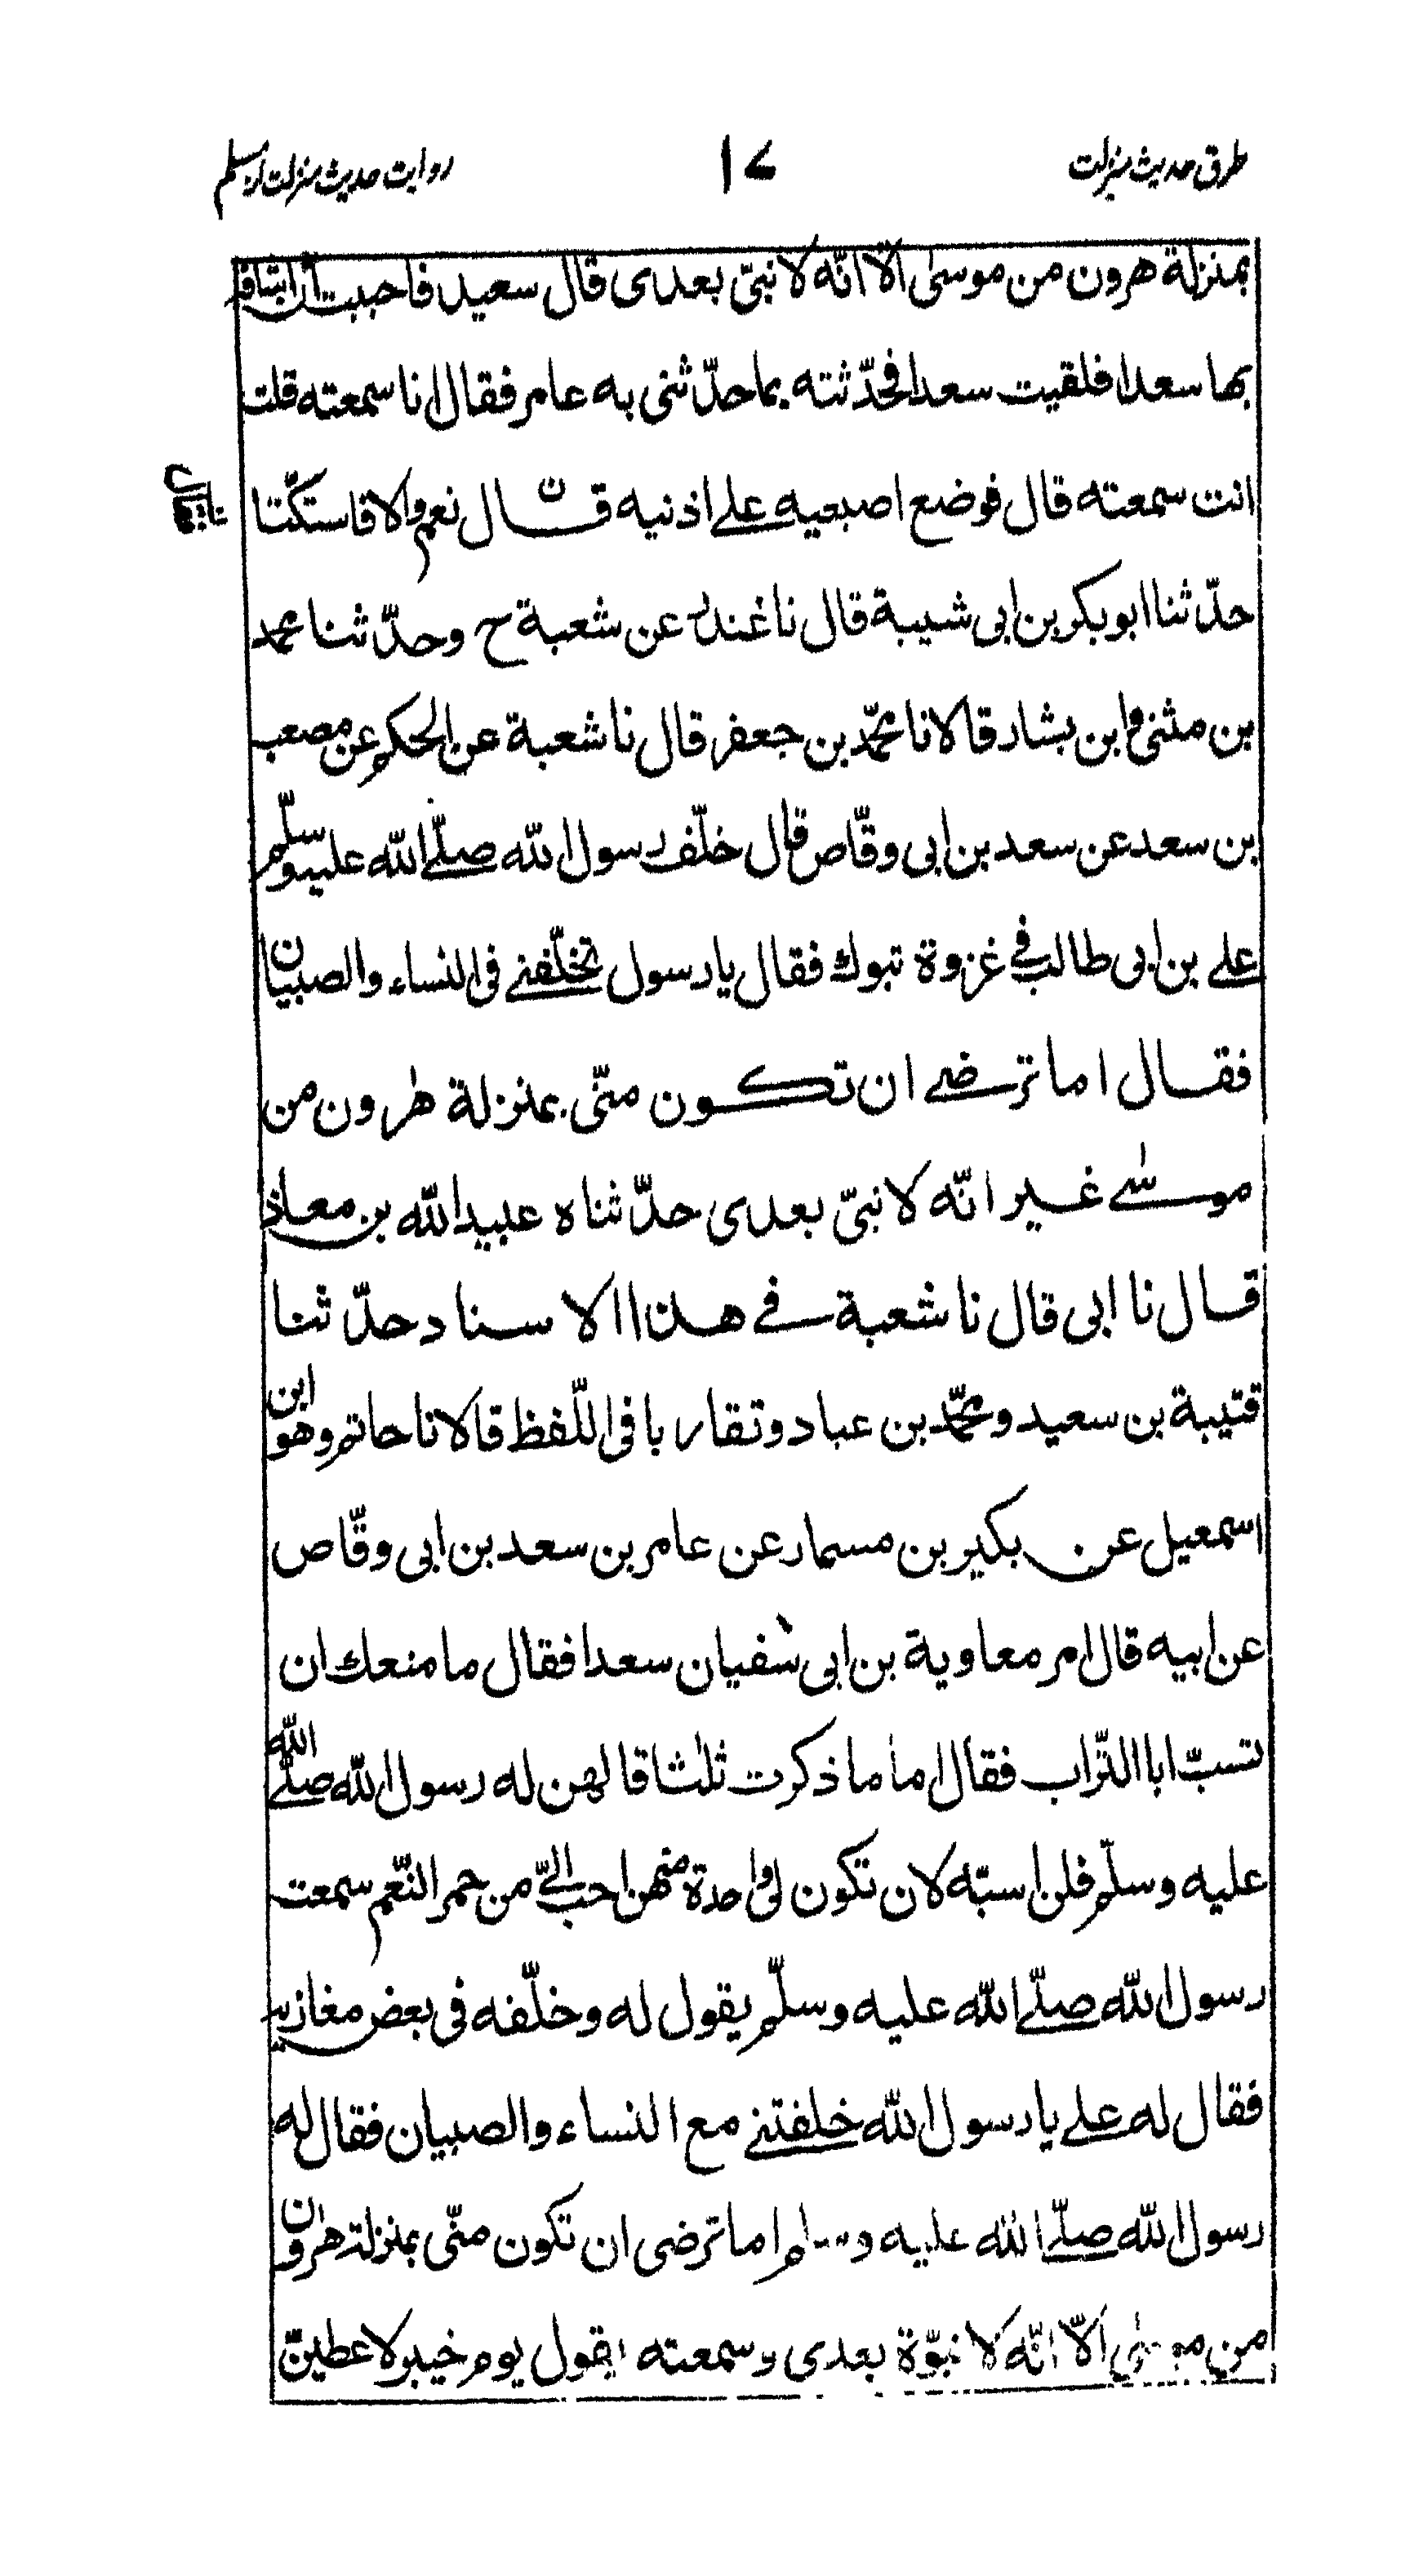 طرق حدیث منزلت
۱۷
روایت حدیث منزلت از مسلم
بمنزلة هرون من موسیٰ الّا انّه لا نبیّ بعدی قال سعید فاحببت ان اشافه
بها سعدا فلقیت سعدا فحدّثته بما حدّثنی به عامر فقال انا سمعته قلت
انت سمعته قال فوضع اصبعیه علی اذنیه قال نعم والا فاستکّتا
حدّثنا ابو بکر بن ابی شیبة قال نا غندر عن شعبة ح وحدّثنا محمد
بن مثنی وابن بشار قالا نا محمّد بن جعفر قال نا شعبة عن الحکم عن مصعب
بن سعد عن سعد بن ابی وقّاص قال خلّف رسول الله صلّی الله علیه وسلّم
علی بن ابی طالب فی غزوة تبوك فقال یا رسول تخلّفنی فی النساء والصبیان
فقال اما ترضی ان تکون منّی بمنزلة هٰرون من
موسٰی غیر انّه لا نبیّ بعدی حدّثناه عبید الله بن معاذ
قال نا ابی قال نا شعبة فی هذا الاسناد حدّثنا
قتیبة بن سعید ومحمّد بن عباد وتقاربا فی اللّفظ قالا نا حاتم وهو ابن
اسمعیل عن بکیر بن مسمار عن عامر بن سعد بن ابی وقّاص
عن ابیه قال امر معاویة بن ابی سفیان سعدا فقال ما منعك ان
تسبّ ابا التّراب فقال اما ما ذکرت ثلٰثا قالهن له رسول الله صلّی الله
علیه وسلّم فلن اسبّه لان تکون لی واحدة منهن احب الیّ من حمر النّعم سمعت
رسول الله صلّی الله علیه وسلّم یقول له وخلّفه فی بعض مغازیه
فقال له علی یا رسول الله خلفتنی مع النساء والصبیان فقال له
رسول الله صلّی الله علیه وسلم اما ترضی ان تکون منّی بمنزلة هٰرون
من موسٰی الّا انّه لا نبوّة بعدی وسمعته یقول یوم خیبر لاعطینّ